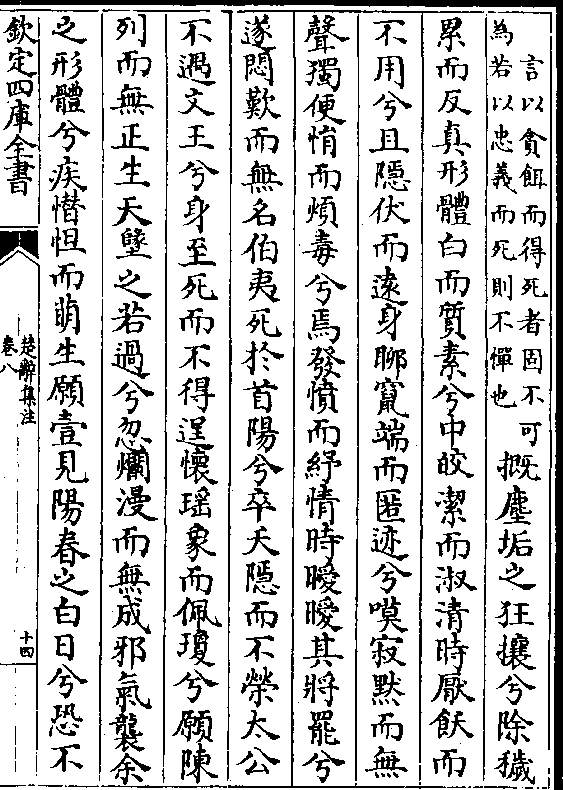 言以貪餌而得死者固不可
為若以忠義而死則不憚也
概塵垢之狂攘兮除穢
累而反真形體白而質素兮中皎潔而淑清時厭飫而
不用兮且隱伏而遠身聊竄端而匿迹兮嘆寂默而無
聲獨便悁而煩毒兮焉發憤而紓情時曖曖其將罷兮
遂悶歎而無名伯夷死於首陽兮卒夭隱而不榮太公
不遇文王兮身至死而不得逞懷瑶象而佩瓊兮願陳
列而無正生天墬之若過兮忽爛漫而無成邪氣襲余
之形體兮疾憯怛而萌生願壹見陽春之白日兮恐不
欽定四庫全書
楚辭集注
卷八
十四